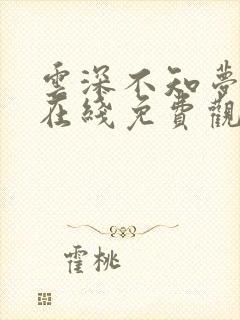 雲深不知夢
在綫免費觀
霍桃